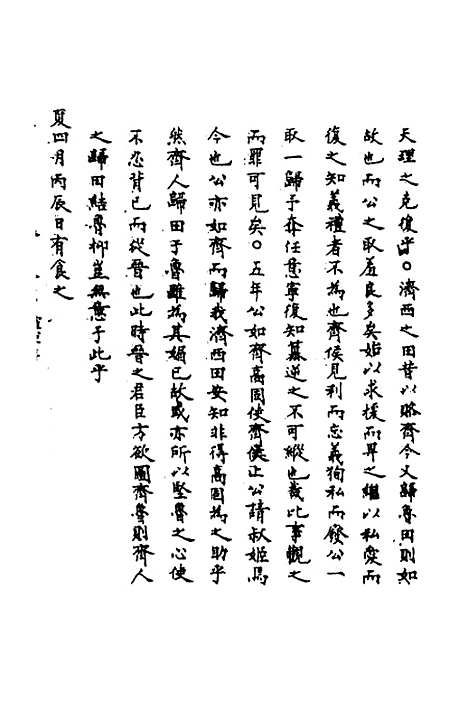 天理之克復乎○濟西之田昔以賂齊今又歸魯田則如
故也而公之取羞良多矣始以求援而畀之繼以私愛而
復之知義禮者不為也齊侯見利而忘義狥私而廢公一
取一歸予奪任意寧復知篡逆之不可縱也哉比事觀之
而罪可見矣○五年公如齊高固使齊侯止公請叔姬焉
今也公亦如齊而歸我濟西田安知非得高固為之助乎
然齊人歸田于魯雖為其婚已故或亦所以堅魯之心使
不忍背已而從晉也此時晉之君臣方欲圖齊魯則齊人
之歸田結魯抑豈無意于此乎
夏四月丙辰日有食之